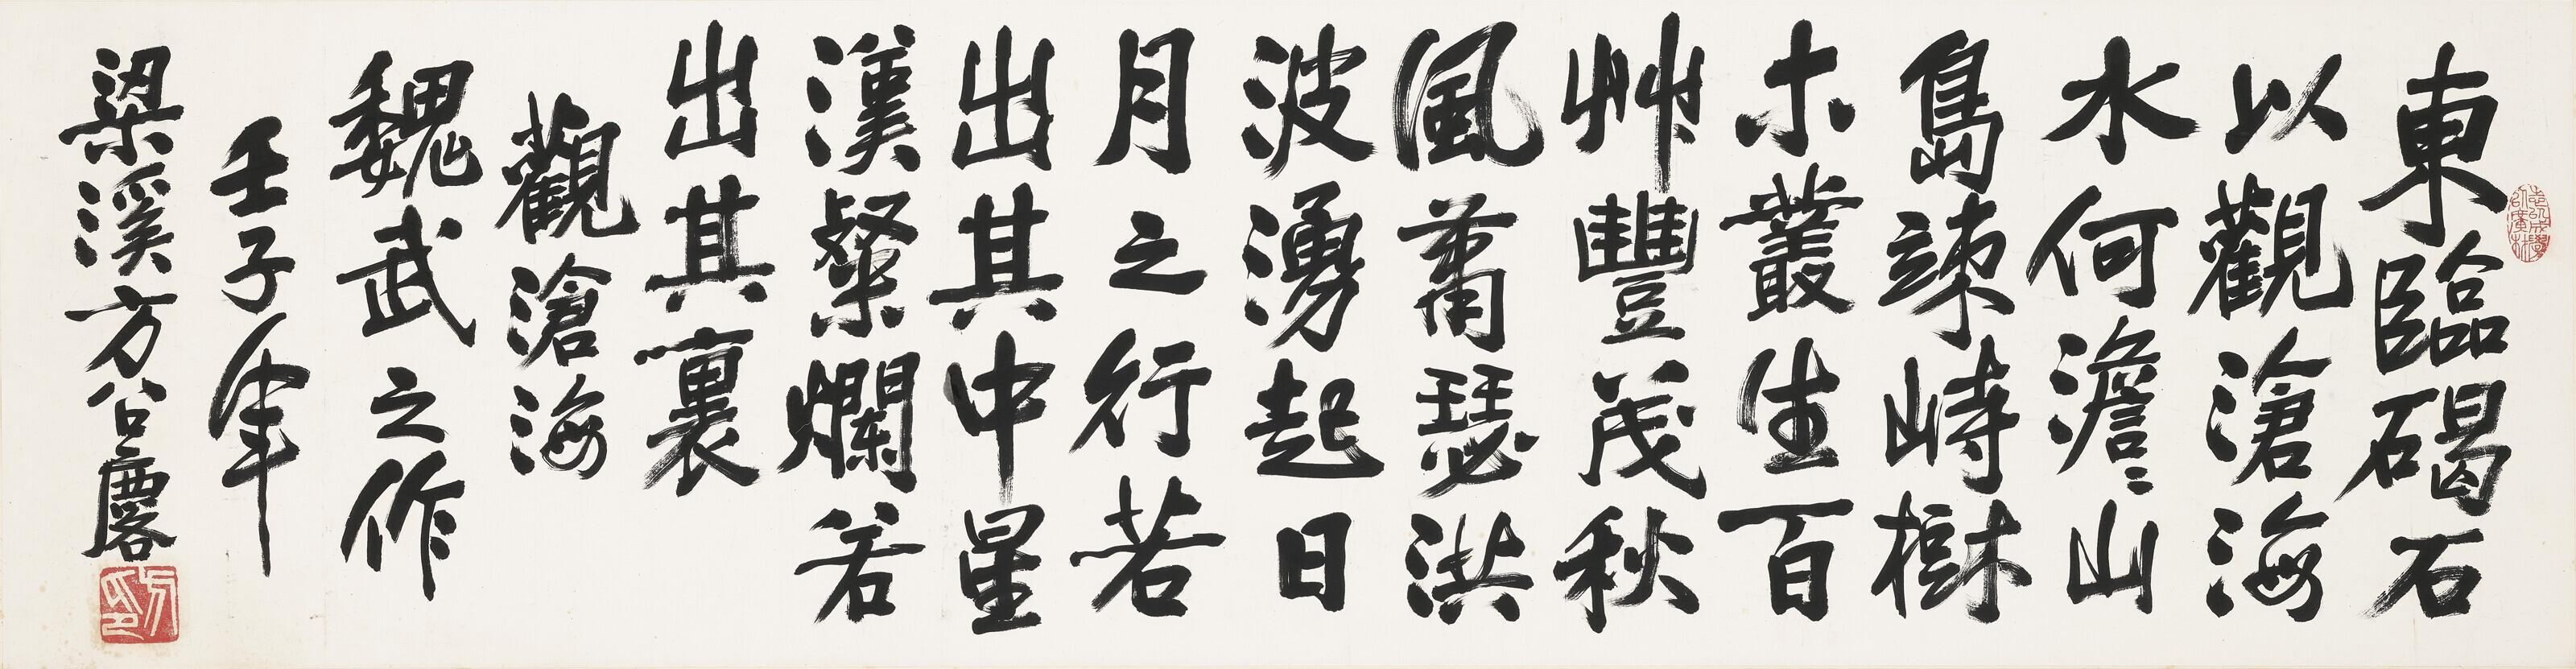 東臨碣石
以觀滄海
水何澹〻山
島竦峙樹
木叢生百
艸豐茂秋
風蕭瑟洪
波湧起日
月之行若
出其中星
漢粲爛若
出其裏
觀滄海
魏武之作
壬子年
梁溪方召麐
方印